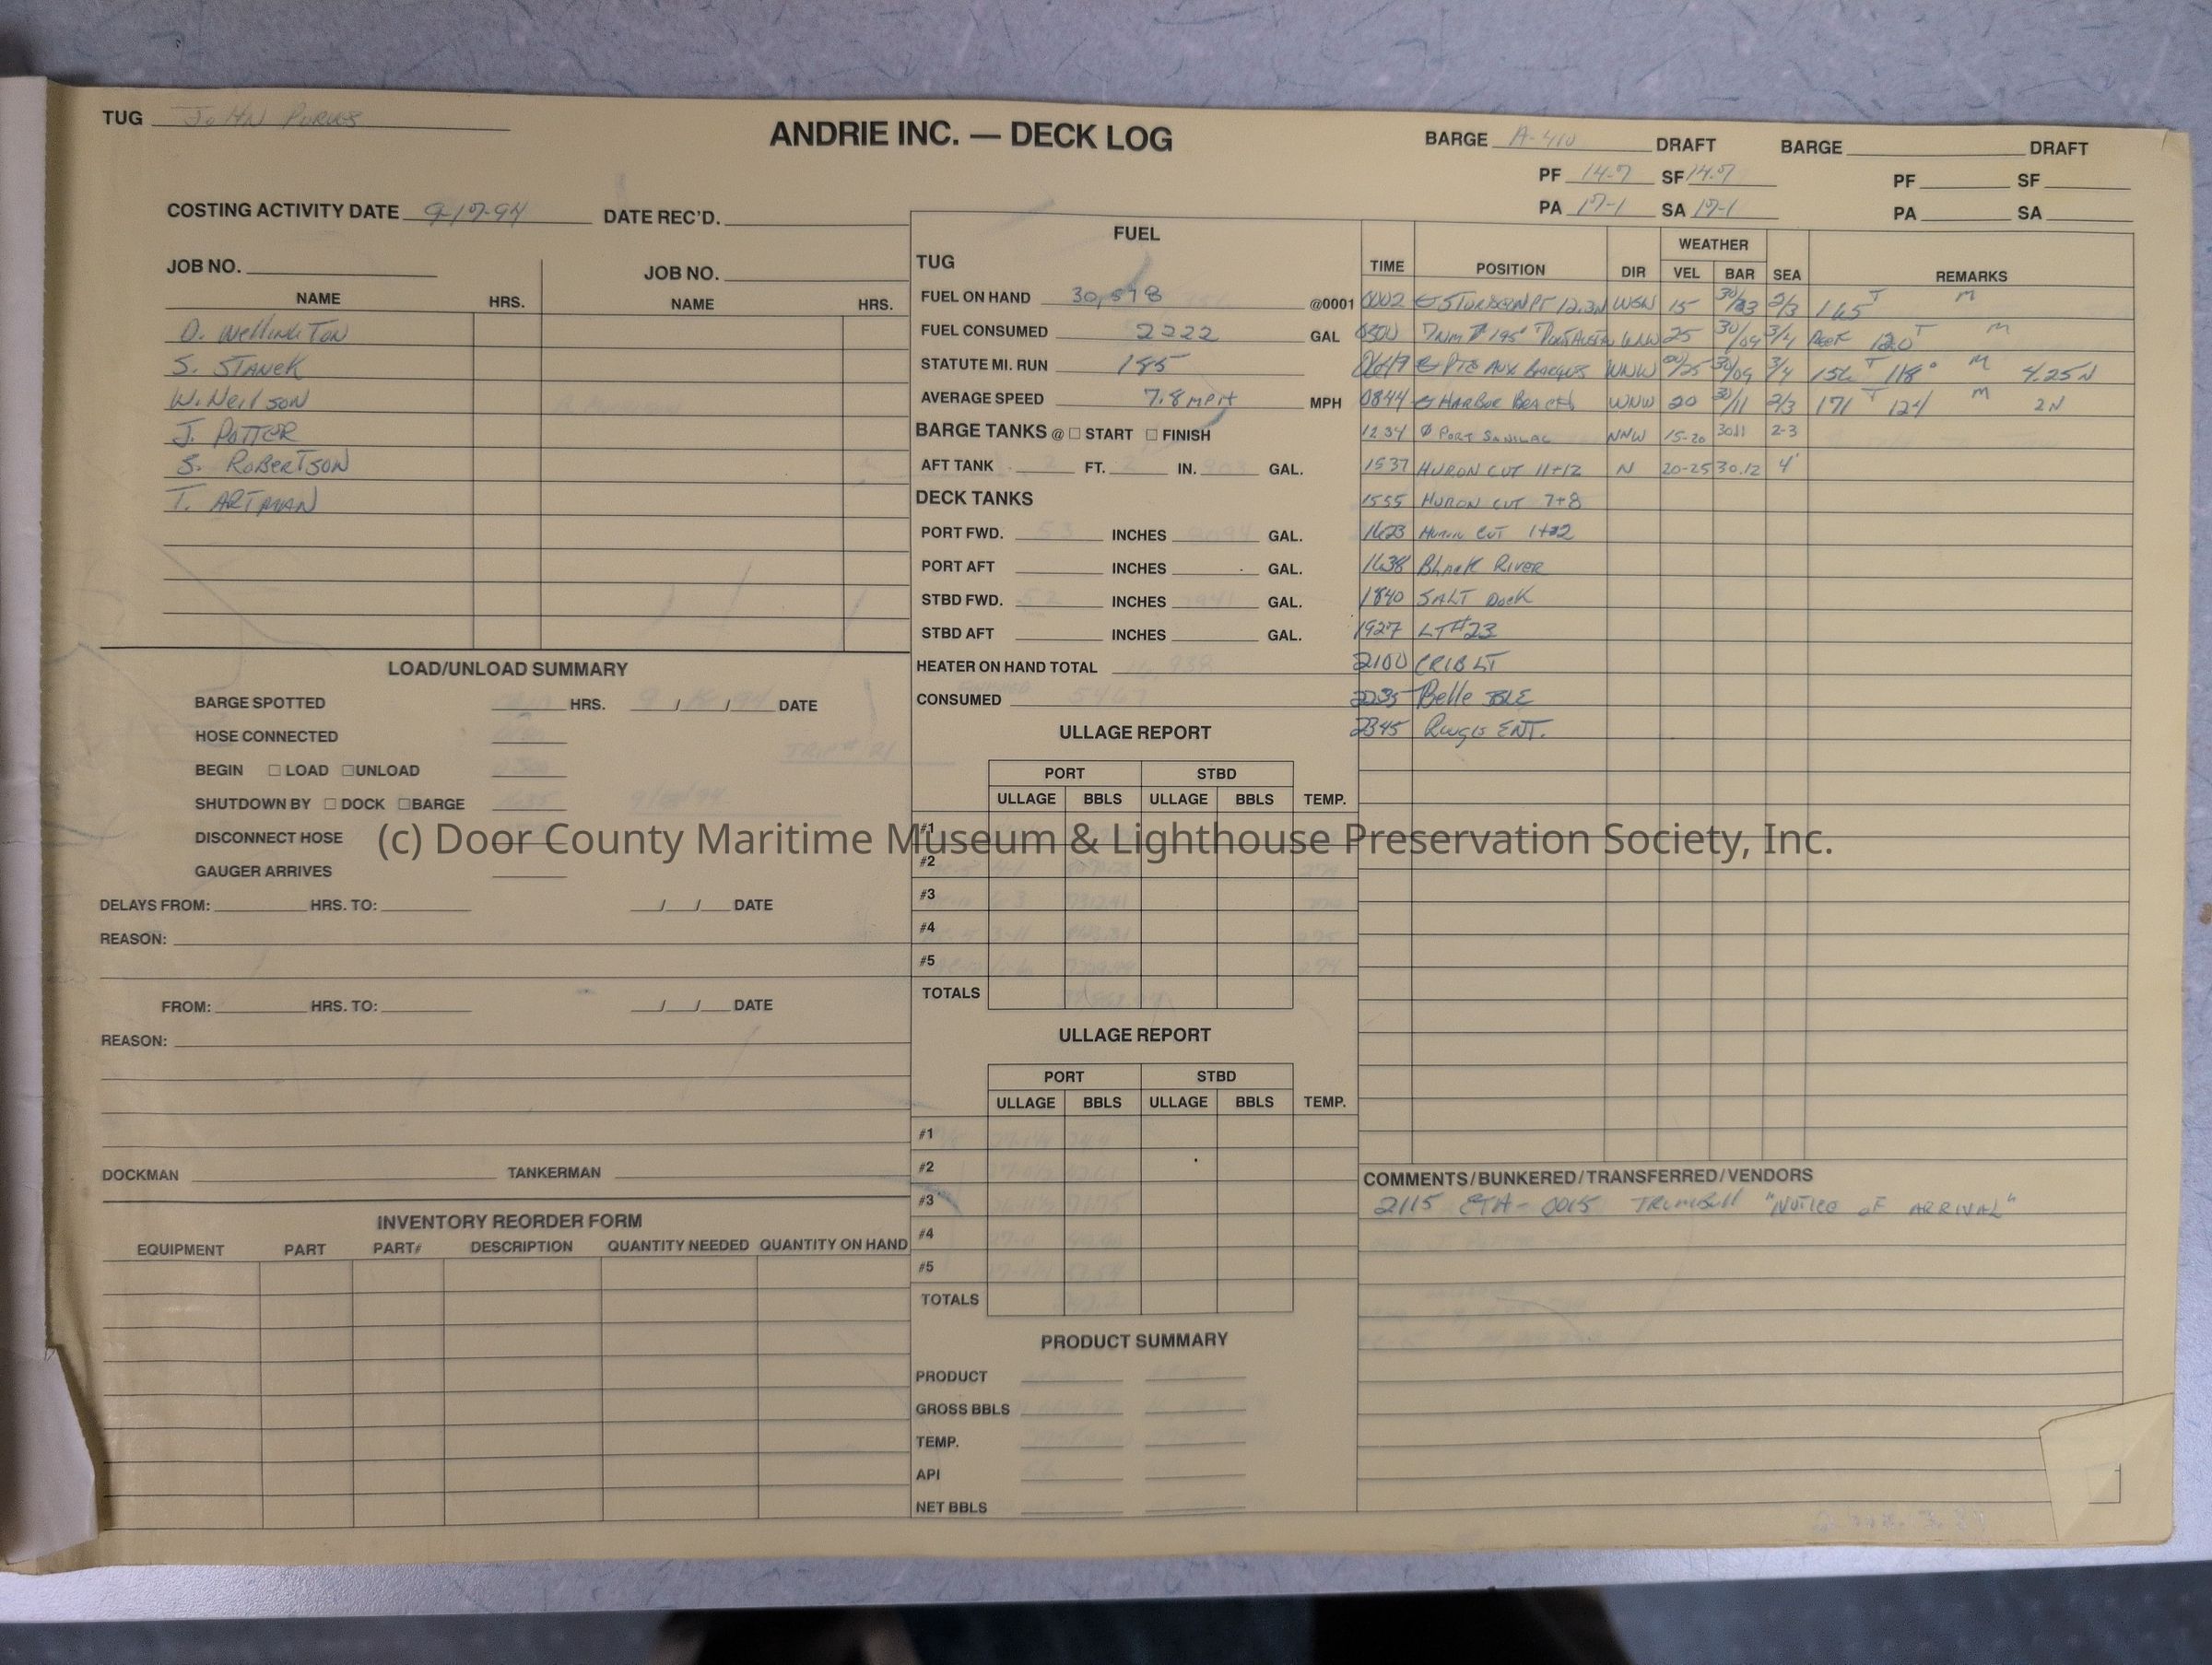 TUG JOHN PURVES
ANDRIE INC. — DECK LOG
BARGE A-410 DRAFT BARGE DRAFT
PF 14-7 SF 14-7 PF SF
PA 17-1 SA 17-1 PA SA
COSTING ACTIVITY DATE 9-17-94 DATE REC'D.
JOB NO. JOB NO.
NAME HRS. NAME HRS.
D. Wellington
S. STANEK
W. Neilson
J. POTTER
S. ROBERTSON
T. ARTMAN
LOAD/UNLOAD SUMMARY
BARGE SPOTTED HRS. / / DATE
HOSE CONNECTED
BEGIN □ LOAD □ UNLOAD
SHUTDOWN BY □ DOCK □ BARGE
DISCONNECT HOSE
GAUGER ARRIVES
DELAYS FROM: HRS. TO: / / DATE
REASON:
FROM: HRS. TO: / / DATE
REASON:
DOCKMAN TANKERMAN
INVENTORY REORDER FORM
EQUIPMENT PART PART# DESCRIPTION QUANTITY NEEDED QUANTITY ON HAND
FUEL
TUG
FUEL ON HAND @0001
FUEL CONSUMED 2222 GAL
STATUTE MI. RUN 185
AVERAGE SPEED 7.8 MPH MPH
BARGE TANKS @ □ START □ FINISH
AFT TANK FT. IN. GAL.
DECK TANKS
PORT FWD. INCHES GAL.
PORT AFT INCHES GAL.
STBD FWD. INCHES GAL.
STBD AFT INCHES GAL.
HEATER ON HAND TOTAL
CONSUMED
ULLAGE REPORT
PORT STBD
ULLAGE BBLS ULLAGE BBLS TEMP.
#1
#2
#3
#4
#5
TOTALS
ULLAGE REPORT
PORT STBD
ULLAGE BBLS ULLAGE BBLS TEMP.
#1
#2
#3
#4
#5
TOTALS
PRODUCT SUMMARY
PRODUCT
GROSS BBLS
TEMP.
API
NET BBLS
WEATHER
TIME POSITION DIR VEL BAR SEA REMARKS
0002 STURGEON PT 12.3N WSW 15 2/3 165 T M
7NM 195° WNW 25 30/09 3/4 120 T M
0649 PTE AUX BARQUES WNW 30/09 3/4 156 T 118° M 4.25N
0844 HARBOR BEACH WNW 20 30/11 2/3 171 T 124 M 2N
1234 PORT SANILAC NNW 15-20 3011 2-3
1537 HURON CUT 11+12 N 20-25 30.12 4'
1555 HURON CUT 7+8
1623 HURON CUT 1+2
1638 BLACK RIVER
1840 SALT DOCK
1927 LT#23
2100 CRIB LT
2235 Belle ISLE
2345 ENT.
COMMENTS/BUNKERED/TRANSFERRED/VENDORS
2115 ETA - 0015 TRUMBULL "NOTICE OF ARRIVAL"
(c) Door County Maritime Museum & Lighthouse Preservation Society, Inc.